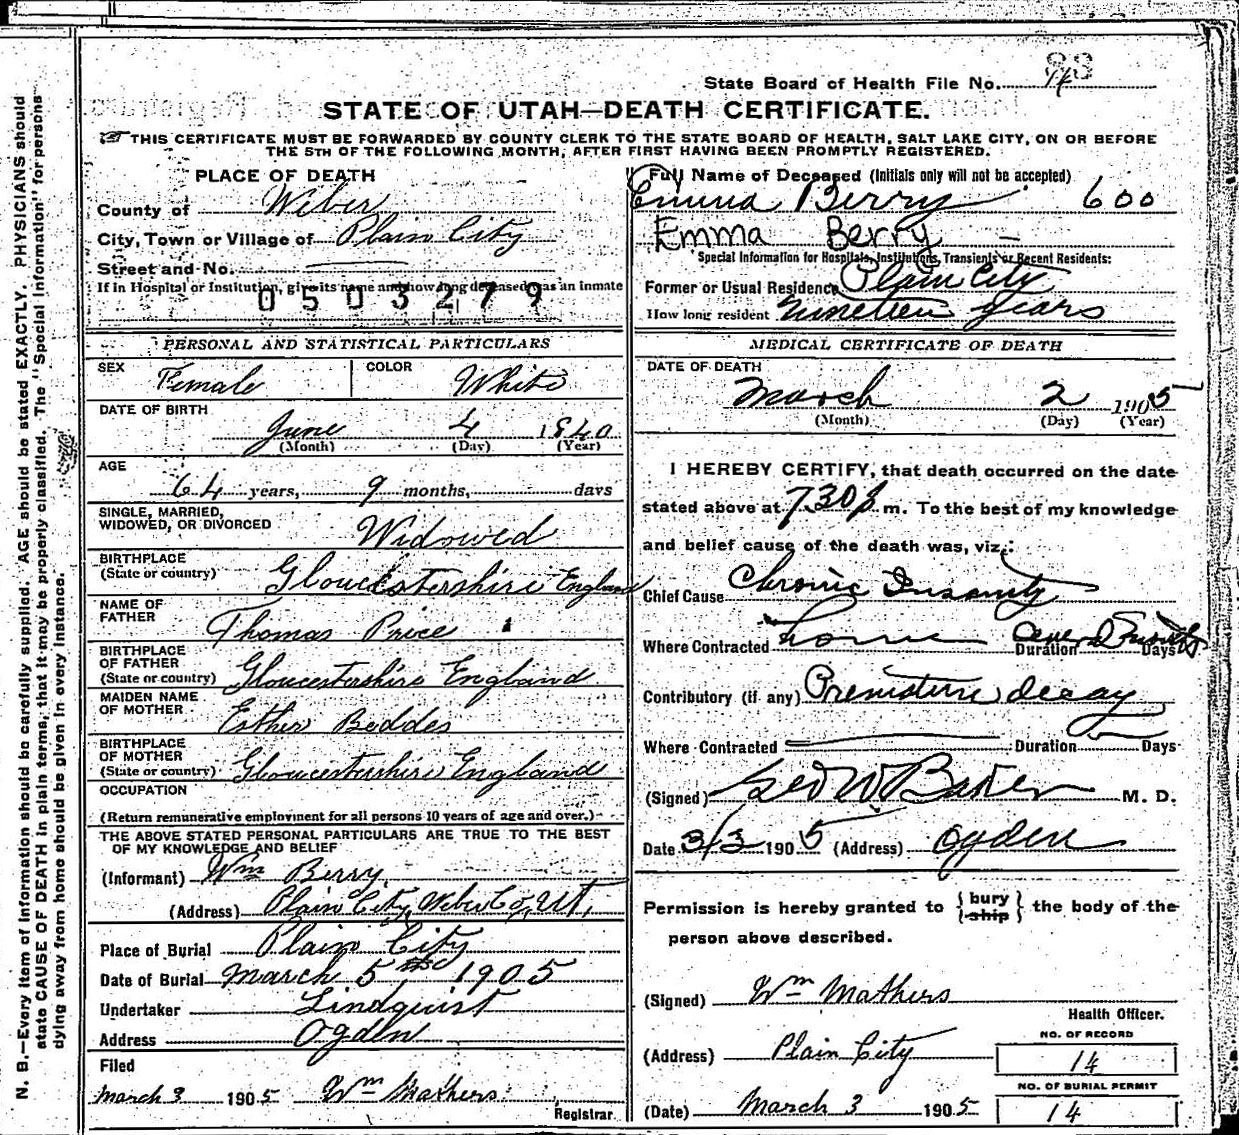 State Board of Health File No. 14
STATE OF UTAH—DEATH CERTIFICATE.
THIS CERTIFICATE MUST BE FORWARDED BY COUNTY CLERK TO THE STATE BOARD OF HEALTH, SALT LAKE CITY, ON OR BEFORE
THE 5TH OF THE FOLLOWING MONTH, AFTER FIRST HAVING BEEN PROMPTLY REGISTERED.
PLACE OF DEATH
County of Weber
City, Town or Village of Plain City
Street and No.
If in Hospital or Institution, give its name and how long deceased was an inmate
0503279
PERSONAL AND STATISTICAL PARTICULARS
SEX Female COLOR White
DATE OF BIRTH
June 4 1840
(Month) (Day) (Year)
AGE
64 years, 9 months, days
SINGLE, MARRIED,
WIDOWED, OR DIVORCED Widowed
BIRTHPLACE
(State or country) Gloucestershire England
NAME OF
FATHER Thomas Price
BIRTHPLACE
OF FATHER
(State or country) Gloucestershire England
MAIDEN NAME
OF MOTHER Esther Beddes
BIRTHPLACE
OF MOTHER
(State or country) Gloucestershire England
OCCUPATION
(Return remunerative employment for all persons 10 years of age and over.)
THE ABOVE STATED PERSONAL PARTICULARS ARE TRUE TO THE BEST
OF MY KNOWLEDGE AND BELIEF
(Informant) Wm Berry
(Address) Plain City, Weber Co, Ut,
Place of Burial Plain City
Date of Burial March 5 1905
Undertaker Lindquist
Address Ogden
Filed
March 3 1905 Wm Mathers
Registrar
Full Name of Deceased (Initials only will not be accepted)
Emma Berry 600
Emma Berry
Special Information for Hospitals, Institutions, Transients or Recent Residents:
Former or Usual Residence Plain City
How long resident nineteen years
MEDICAL CERTIFICATE OF DEATH
DATE OF DEATH
March 2 1905
(Month) (Day) (Year)
I HEREBY CERTIFY, that death occurred on the date
stated above at 7.30 p m. To the best of my knowledge
and belief cause of the death was, viz.:
Chief Cause Chronic Insanity
Where Contracted home Duration Days
Contributory (if any) Premature decay
Where Contracted Duration Days
(Signed) Geo W Baker M. D.
Date 3/3 1905 (Address) Ogden
Permission is hereby granted to {bury ship} the body of the
person above described.
(Signed) Wm Mathers
Health Officer.
(Address) Plain City
NO. OF RECORD
14
NO. OF BURIAL PERMIT
14
(Date) March 3 1905
N. B.—Every item of information should be carefully supplied. AGE should be stated EXACTLY. PHYSICIANS should
state CAUSE OF DEATH in plain terms, that it may be properly classified. The "Special Information" for persons
dying away from home should be given in every instance.